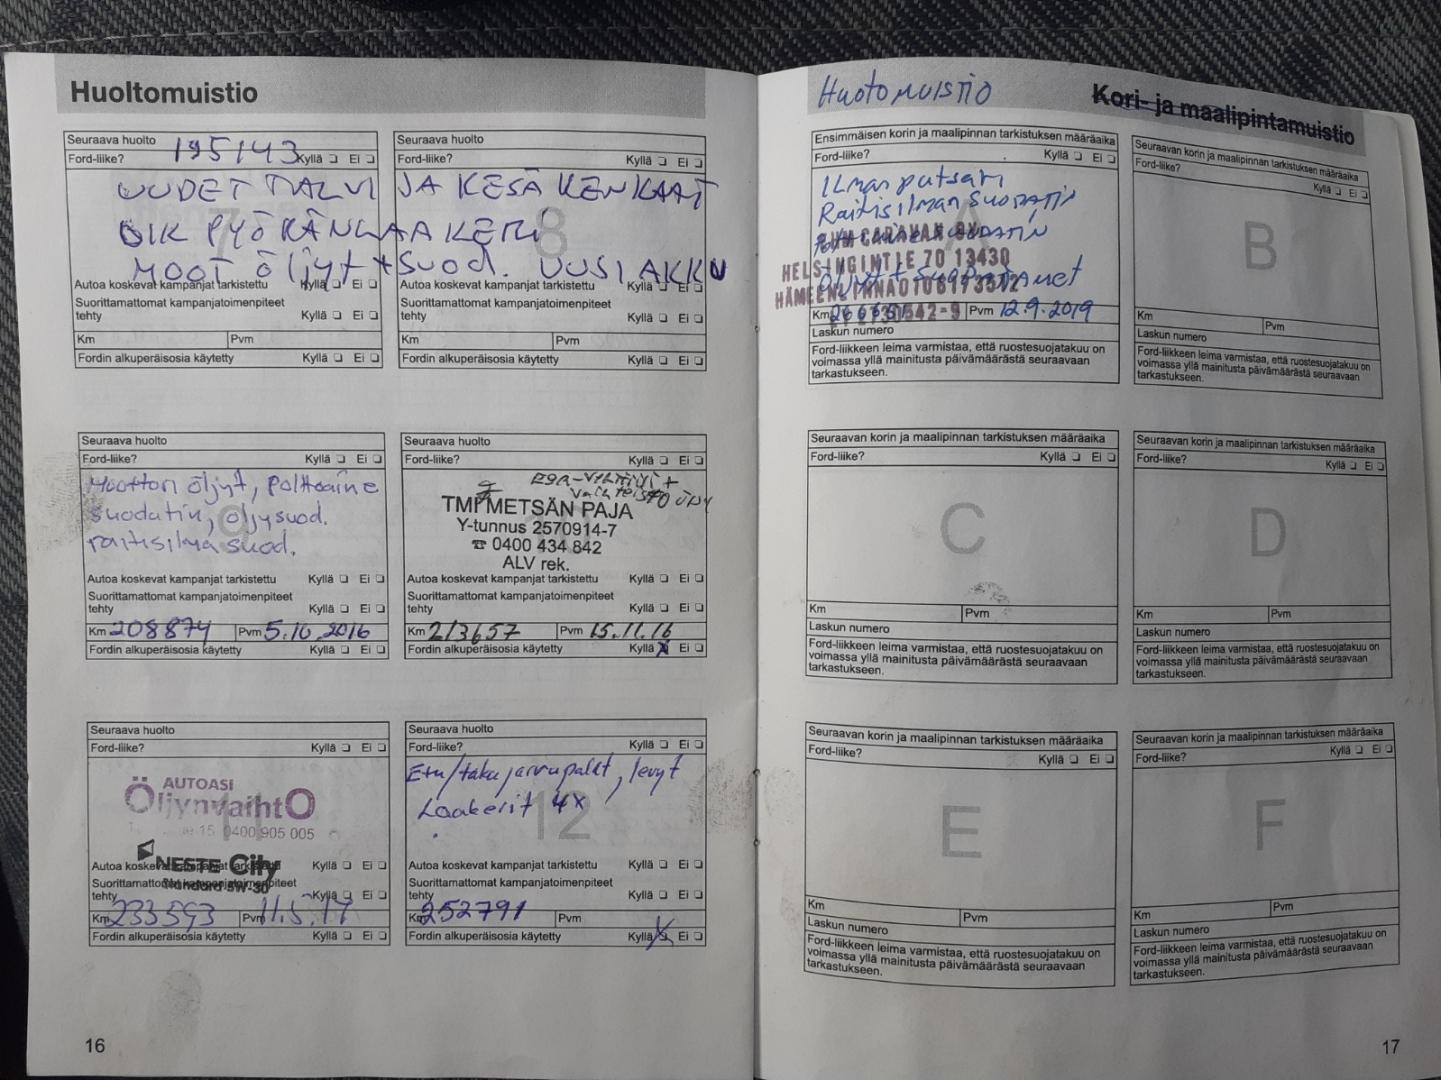 Huoltomuistio
Seuraava huolto
195143
Ford-liike? Kyllä ❏ Ei ❏
Seuraava huolto
Ford-liike? Kyllä ❏ Ei ❏
UUDET TALVI JA KESÄ RENKAAT
OIK PYÖRÄNLAAKERI 8
MOOT ÖLJYT + SUOD. UUSI AKKU
Autoa koskevat kampanjat tarkistettu Kyllä ❏ Ei ❏
Suorittamattomat kampanjatoimenpiteet
tehty Kyllä ❏ Ei ❏
Km Pvm
Fordin alkuperäisosia käytetty Kyllä ❏ Ei ❏
Autoa koskevat kampanjat tarkistettu Kyllä ❏ Ei ❏
Suorittamattomat kampanjatoimenpiteet
tehty Kyllä ❏ Ei ❏
Km Pvm
Fordin alkuperäisosia käytetty Kyllä ❏ Ei ❏
Seuraava huolto
Ford-liike? Kyllä ❏ Ei ❏
Moottori öljyt, polttoaine
suodatin, öljysuod.
raitisilma suod.
Autoa koskevat kampanjat tarkistettu Kyllä ❏ Ei ❏
Suorittamattomat kampanjatoimenpiteet
tehty Kyllä ❏ Ei ❏
Km 208874 Pvm 5.10.2016
Fordin alkuperäisosia käytetty Kyllä ❏ Ei ❏
Seuraava huolto
Ford-liike? Kyllä ❏ Ei ❏
EGR-venttiili +
vaihteistoöljy
TMI METSÄN PAJA
Y-tunnus 2570914-7
☎ 0400 434 842
ALV rek.
Autoa koskevat kampanjat tarkistettu Kyllä ❏ Ei ❏
Suorittamattomat kampanjatoimenpiteet
tehty Kyllä ❏ Ei ❏
Km 213657 Pvm 15.11.16
Fordin alkuperäisosia käytetty Kyllä X Ei ❏
Seuraava huolto
Ford-liike? Kyllä ❏ Ei ❏
AUTOASI
ÖljynvaihtO
15 0400 905 005
NESTE City
Standard 5W-30
Autoa koskevat kampanjat tarkistettu Kyllä ❏ Ei ❏
Suorittamattomat kampanjatoimenpiteet
tehty Kyllä ❏ Ei ❏
Km 233593 Pvm 11.5.17
Fordin alkuperäisosia käytetty Kyllä ❏ Ei ❏
Seuraava huolto
Ford-liike? Kyllä ❏ Ei ❏
Etu/taka jarrupalat, levyt
Laakerit 4x
12
Autoa koskevat kampanjat tarkistettu Kyllä ❏ Ei ❏
Suorittamattomat kampanjatoimenpiteet
tehty Kyllä ❏ Ei ❏
Km 252791 Pvm
Fordin alkuperäisosia käytetty Kyllä X Ei ❏
16
Huotomuistio
Kori- ja maalipintamuistio
Ensimmäisen korin ja maalipinnan tarkistuksen määräaika
Ford-liike? Kyllä ❏ Ei ❏
Ilmanputsari
Raitisilman suodatin
A
CARAVAN OY
HELSINGINTIE 70 13430
HÄMEENLINNA
Öljyt + suodattimet
Km Pvm 12.9.2019
Laskun numero
Ford-liikkeen leima varmistaa, että ruostesuojatakuu on
voimassa yllä mainitusta päivämäärästä seuraavaan
tarkastukseen.
Seuraavan korin ja maalipinnan tarkistuksen määräaika
Ford-liike? Kyllä ❏ Ei ❏
B
Km Pvm
Laskun numero
Ford-liikkeen leima varmistaa, että ruostesuojatakuu on
voimassa yllä mainitusta päivämäärästä seuraavaan
tarkastukseen.
Seuraavan korin ja maalipinnan tarkistuksen määräaika
Ford-liike? Kyllä ❏ Ei ❏
C
Km Pvm
Laskun numero
Ford-liikkeen leima varmistaa, että ruostesuojatakuu on
voimassa yllä mainitusta päivämäärästä seuraavaan
tarkastukseen.
Seuraavan korin ja maalipinnan tarkistuksen määräaika
Ford-liike? Kyllä ❏ Ei ❏
D
Km Pvm
Laskun numero
Ford-liikkeen leima varmistaa, että ruostesuojatakuu on
voimassa yllä mainitusta päivämäärästä seuraavaan
tarkastukseen.
Seuraavan korin ja maalipinnan tarkistuksen määräaika
Ford-liike? Kyllä ❏ Ei ❏
E
Km Pvm
Laskun numero
Ford-liikkeen leima varmistaa, että ruostesuojatakuu on
voimassa yllä mainitusta päivämäärästä seuraavaan
tarkastukseen.
Seuraavan korin ja maalipinnan tarkistuksen määräaika
Ford-liike? Kyllä ❏ Ei ❏
F
Km Pvm
Laskun numero
Ford-liikkeen leima varmistaa, että ruostesuojatakuu on
voimassa yllä mainitusta päivämäärästä seuraavaan
tarkastukseen.
17